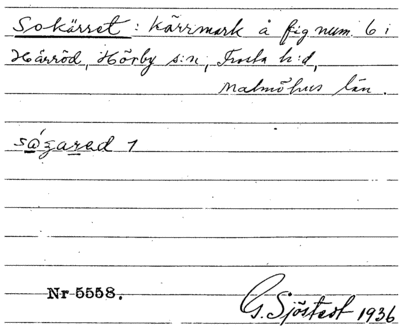 Sokärret : Kärrmark å fig num. 6 i
Härröd, Hörby s:n, Frosta h:d,
Malmöhus län.
Nr 5558.
G. Sjöstedt 1936